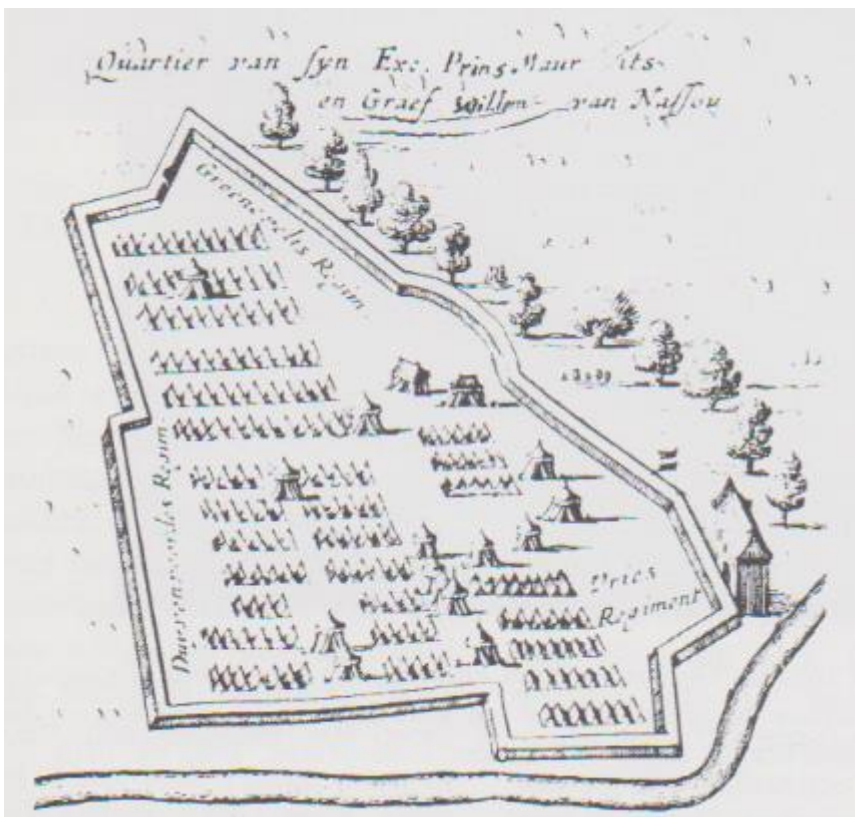 Quartier van syn Exc. Prins Maurits
en Graef Willem van Nassou
Groenevelts Regim.
Duivenvoordes Regim.
Vries
Regiment